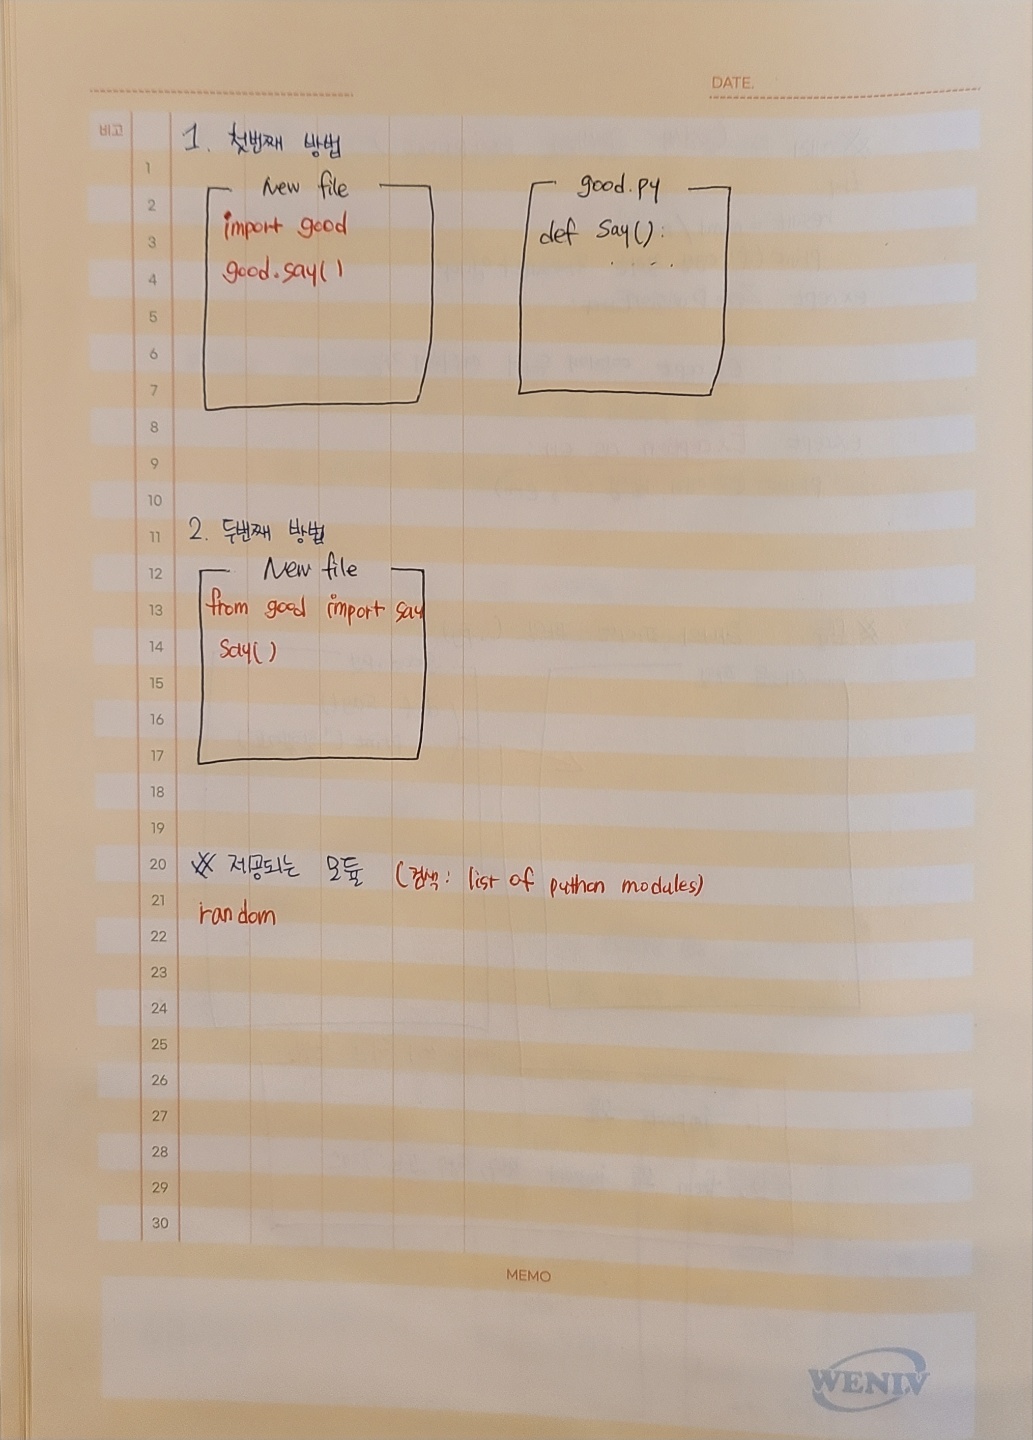 DATE.
비고
1. 첫번째 방법
1
New file
good.py
2
import good
def say():
3
good.say()
. . . .
4
5
6
7
8
9
10
2. 두번째 방법
11
New file
12
from good import say
13
say()
14
15
16
17
18
19
※ 제공되는 모듈 (검색: list of python modules)
20
random
21
22
23
24
25
26
27
28
29
30
MEMO
WENIV